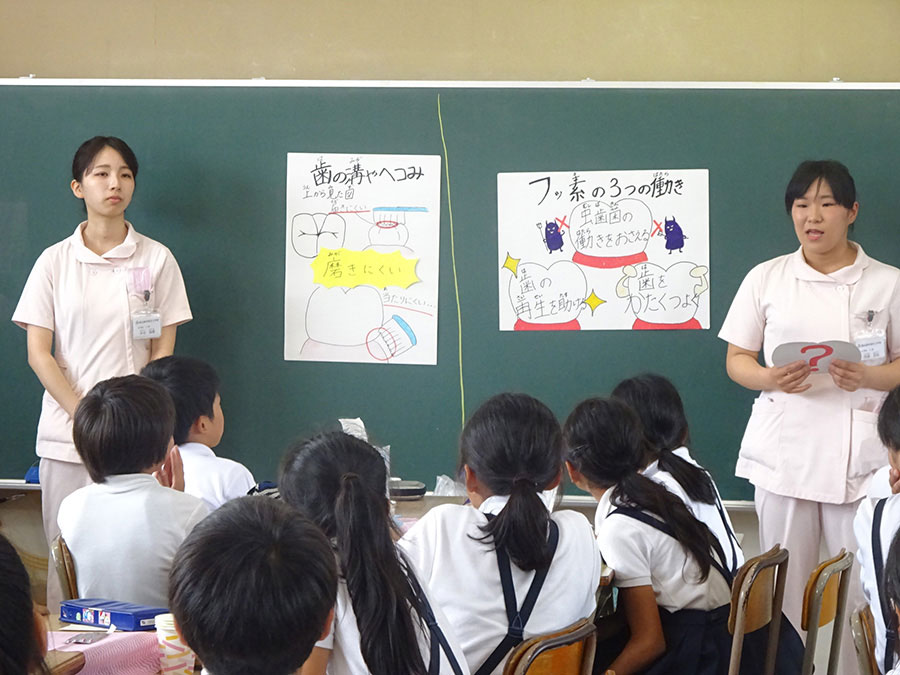 歯の溝やヘコみ
上から見た図
磨きにくい
当たりにくい…
フッ素の3つの働き
虫歯菌の
働きをおさえる
歯の
再生を助ける
歯を
かたくつよく
?